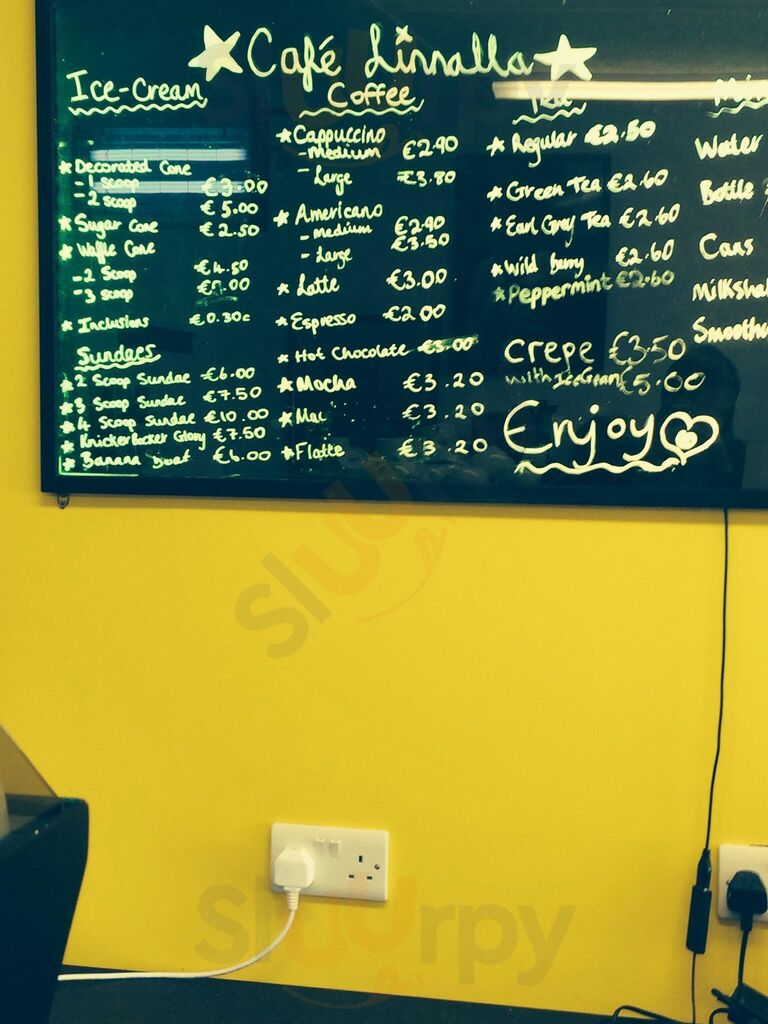 Café Linnalla
Ice-Cream
★ Decorated Cone
- 1 scoop €3.00
- 2 scoop €5.00
★ Sugar Cone €2.50
★ Waffle Cone
- 2 Scoop €4.50
- 3 scoop
★ Inclusions €0.30c
Sundaes
★ 2 Scoop Sundae €6.00
★ 3 Scoop Sundae €7.50
★ 4 Scoop Sundae €10.00
★ KnickerBocker Glory €7.50
★ Banana Boat €6.00
Coffee
★ Cappuccino
- Medium €2.90
- Large €3.80
★ Americano
- medium €2.90
- Large €3.50
★ Latte €3.00
★ Espresso €2.00
★ Hot Chocolate €3.00
★ Mocha €3.20
★ Mac €3.20
★ Flatte €3.20
Tea
★ Regular €2.50
★ Green Tea €2.60
★ Earl Grey Tea €2.60
★ Wild berry €2.60
★ Peppermint €2.60
Crepe €3.50
with IceCream €5.00
Enjoy
Water
Bottle
Cans
Milksha
Smooth
Sluurpy
Sluurpy